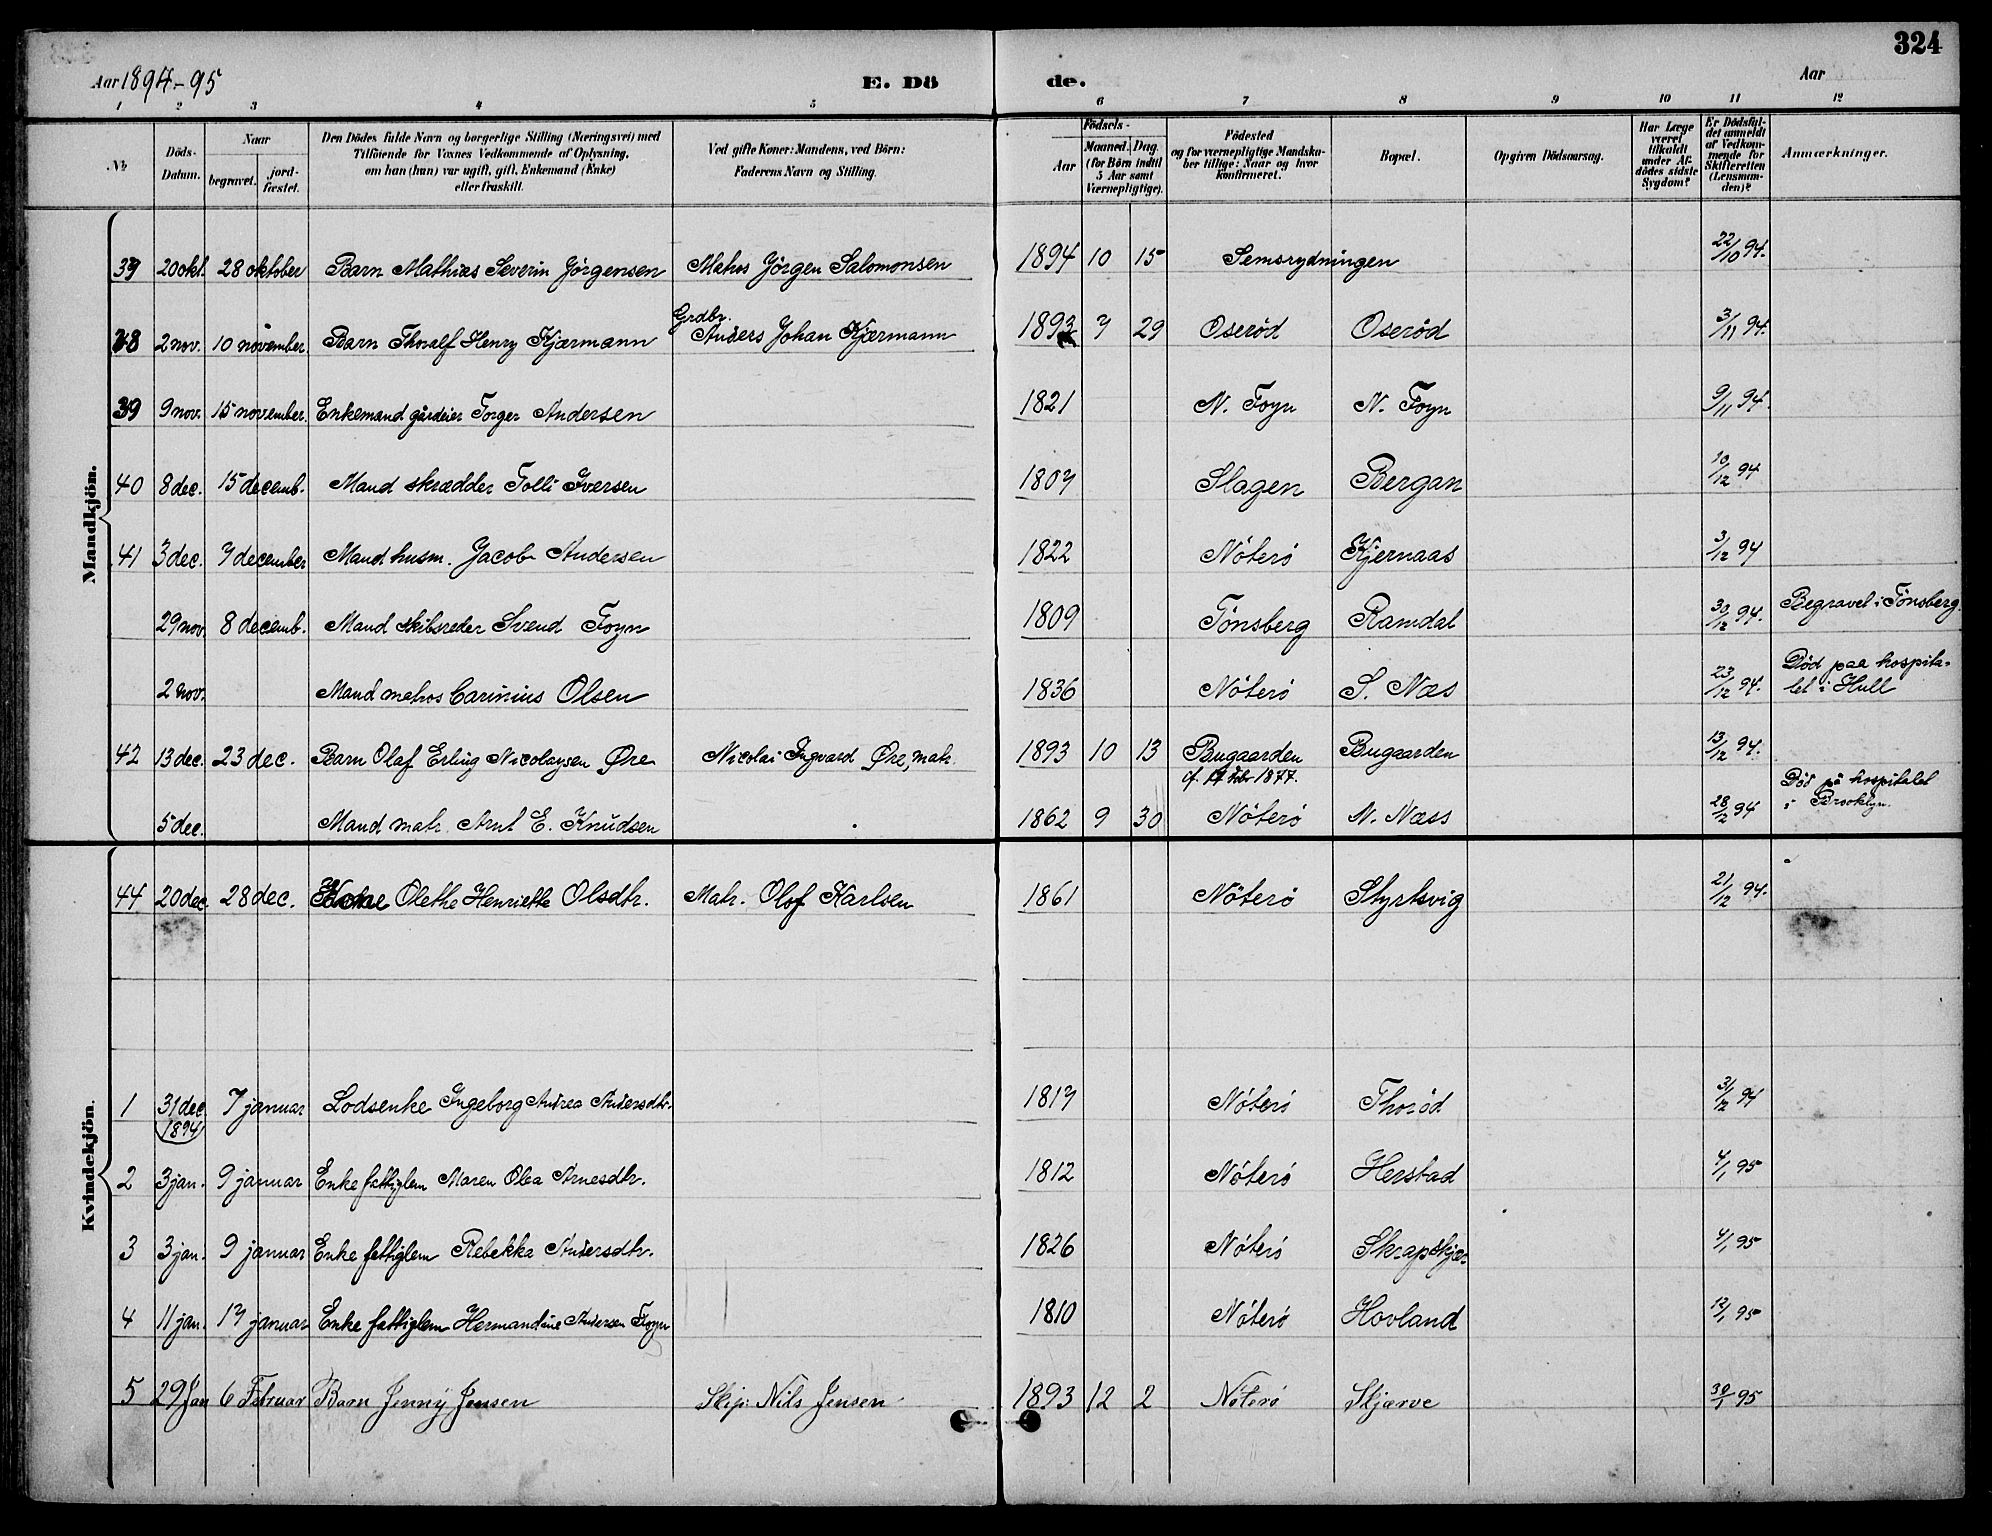 324
Aar 1894-95 E. Dö de. Aar
1 2 3 4 5 6 7 8 9 10 11 12
No.
Döds-Datum.
Naar
begravet.
jordfæstet.
Den Dödes fulde Navn og borgerlige Stilling (Næringsvei) med
Tilföiende for Voxnes Vedkommende af Oplysning,
om han (hun) var ugift, gift, Enkemand (Enke)
eller fraskilt.
Ved gifte Koner: Mandens, ved Börn:
Faderens Navn og Stilling.
Födsels-
Aar
Maaned. Dag.
(for Börn indtil
5 Aar samt
Værnepligtige).
Födested
og for værnepligtige Mandska-
ber tillige: Naar og hvor
konfirmeret.
Bopæl.
Opgiven Dödsaarsag.
Har Læge
været
tilkaldt
under Af-
dødes sidste
Sygdom?
Er Dödsfal-
det anmeldt
af Vedkom-
mende for
Skifteretten
(Lensman-
den)?
Anmærkninger.
Mandkjön.
39 20 okt. 28 oktober Barn Mathias Severin Jørgensen Matros Jörgen Salomonsen 1894 10 15 Semsrydningen 22/10 94.
38 2 nov. 10 november. Barn Thoralf Henry Kjærmann Grdbr. Anders Johan Kjærmann 1893 7 29 Oserød Oserød 3/11 94.
39 9 nov. 15 november. Enkemand gårdeier Torger Andersen 1821 N. Foyn N. Foyn 9/11 94.
40 8 dec. 15 decemb. Mand skrædder Tolli Iversen 1807 Slagen Bergan 10/12 94
41 3 dec. 7 december Mand husm. Jacob Andersen 1822 Nöterö Kjernaas 3/12 94
29 nov. 8 decemb. Mand skibsreder Svend Foyn 1809 Tönsberg Ramdal 30/12 94. Begravet i Tönsberg.
2 nov. Mand matros Carinius Olsen 1836 Nöterö S. Næs 23/12 94. Död paa hospita-
let i Hull
42 13 dec. 23 dec. Barn Olaf Erling Nicolaysen Øre Nicolai Ingvard Øre, matr. 1893 10 13 Bugaarden Bugaarden 13/12 94.
5 dec. Mand matr. Arnt E. Knudsen 1862 9 30 Nöterö N. Næss 28/12 94 Död på hospitalet
i Brooklyn.
Kvindekjön.
44 20 dec. 28 dec. Kone Olethe Henriette Olsdtr. Matr. Olof Karlsen 1861 Nöterö Styrtsvig 21/12 94.
1 31 dec. 1894 7 januar Lodsenke Ingeborg Andrea Andersdtr. 1817 Nöterö Thoröd 31/12 94
2 3 jan. 9 januar Enke fattiglem Maren Olea Arnesdtr. 1812 Nöterö Herstad 4/1 95
3 3 jan. 9 januar Enke fattiglem Rebekka Andersdtr. 1826 Nöterö Skrapskjær 4/1 95
4 11 jan. 17 januar Enke fattiglem Hermandine Andersen Foyn 1810 Nöterö Hovland 12/1 95
5 29 Jan 6 Februar Barn Jenny Jensen Skip. Nils Jensen 1893 12 2 Nöterö Skjærve 30/1 95